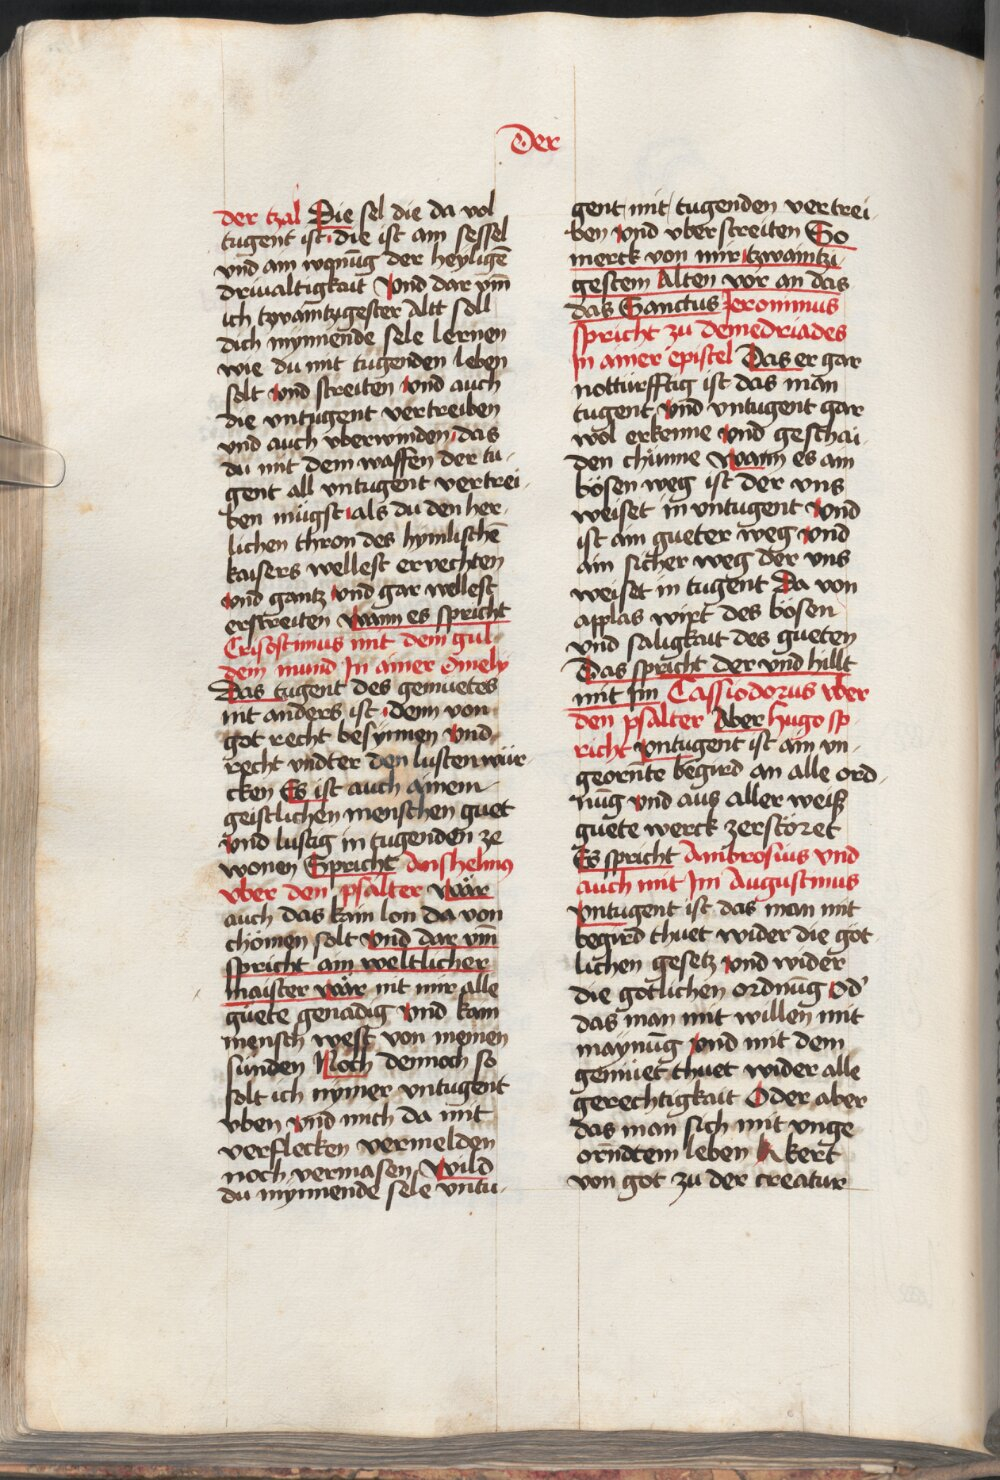 Der
der tzal Die sel die da vol
tugent ist die ist am sessel
vnd am wonūg der heyligē
driualtigkait Vnd dar vm̄
ich tzwaintzigester Altt soll
dich mynnende sele lernen
wie du mit tugenden leben
solt vnd streiten vnd auch
die vntugent vertreiben
vnd auch vberwinden das
du mit dem waffen der tu-
gent all vntugent vertrei-
ben mügst als du den her-
lichen thron des hymlischē
kaisers wellest ervechten
vnd gantz vnd gar wellest
erstreiten wann es spricht
Crisostimus mit dem gul
dem mund In ainer Omely
Das tugent des gemuetes
nit anders ist denn von
got recht besynnen vnd
recht vndter den lusten wür-
cken Es ist auch ainem
geistlichen menschen guet
vnd lustig in tugenden ze
wonen Spricht Anshelmus
vber den psalter Wär
auch das kain lon da von
chömen solt vnd dar vm̄
spricht ain weltlicher
maister wär nit mir alle
guete genadig vnd kain
mensch west von meinen
sünden Noch dennoch so
solt ich nymer vntugent
vben vnd mich da mit
verflecken vermelden
noch vermasen Wild
du mynnende sele vntu-
gent mit tugenden vertrei-
ben vnd vberstreiten So
merck von mir tzwaintzi-
gestem Alten vor an das
das Sanctus Jeronimus
spricht zu demedriades
In ainer epistel Das er gar
notturfftig ist das man
tugent vnd vntugent gar
wol erkenne vnd geschai-
den chünne Wann es am
bösen weg ist der vns
weiset in vntugent vnd
ist am gueter weg vnd
ain sicher weg der vns
weiset in tugent Da von
applas wirt des bösen
vnd saligkait des gueten
Das spricht der vnd hillt
mit Im Cassiodorus vber
den psalter Aber Hugo sp-
richt vntugent ist ain vn-
georn̄te begird an alle ord-
nūg vnd aus aller weiß
guete werck zerstöret
Es spricht Ambrosius vnd
auch mit Im Augustinus
vntugent ist das man mit
begird thuet wider die göt-
lichen gesetz vnd wider
die götlichen ordnūg od'
das man mit willen mit
maynūg vnd mit dem
gemüet thuet wider alle
gerechtigkait Oder aber
das man sich mit vnge
orndtem leben kert
von got zu der creatur